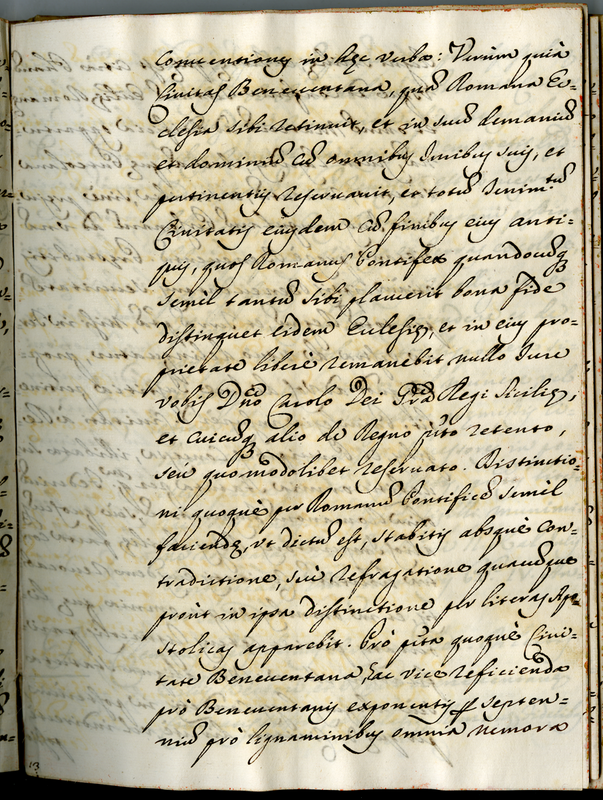 Conventionis in hęc verba: Verùm quià
Civitas Beneventana, quā Romana Ec-
clesia sibi retinuit, et in suū demaniū
et dominiū cū omnibus Juribus suis, et
pertinentijs reservavit, et totū
Civitatis eiusdem cū finibus eius anti-
quis, quos Romanus Pontifex quandocūq
semèl tantū sibi placuerit bona fide
distinguet eidem Eclesię, et in eius pro-
prietate liberè remanebit nullo Jure
vobis Dño Carolo Dei Grā Regi Sicilię,
et cuicūq alio de Regno p̄to retento,
seù quomodolibet reservato. Distinctio-
ni quoquè per Romanū Pontificē semèl
faciendę, vt dictū est, stabitis absquè con-
tradictione, seù refragatione quacūque
proùt in ipsa distinctione per literas Apo-
stolicas apparebit. Prò p̄ta quoquè Civi-
tate Beneventana, hac vice reficienda
prò Beneventanis exponentis p septen-
niū prò lignaminibus omnia nemora
13